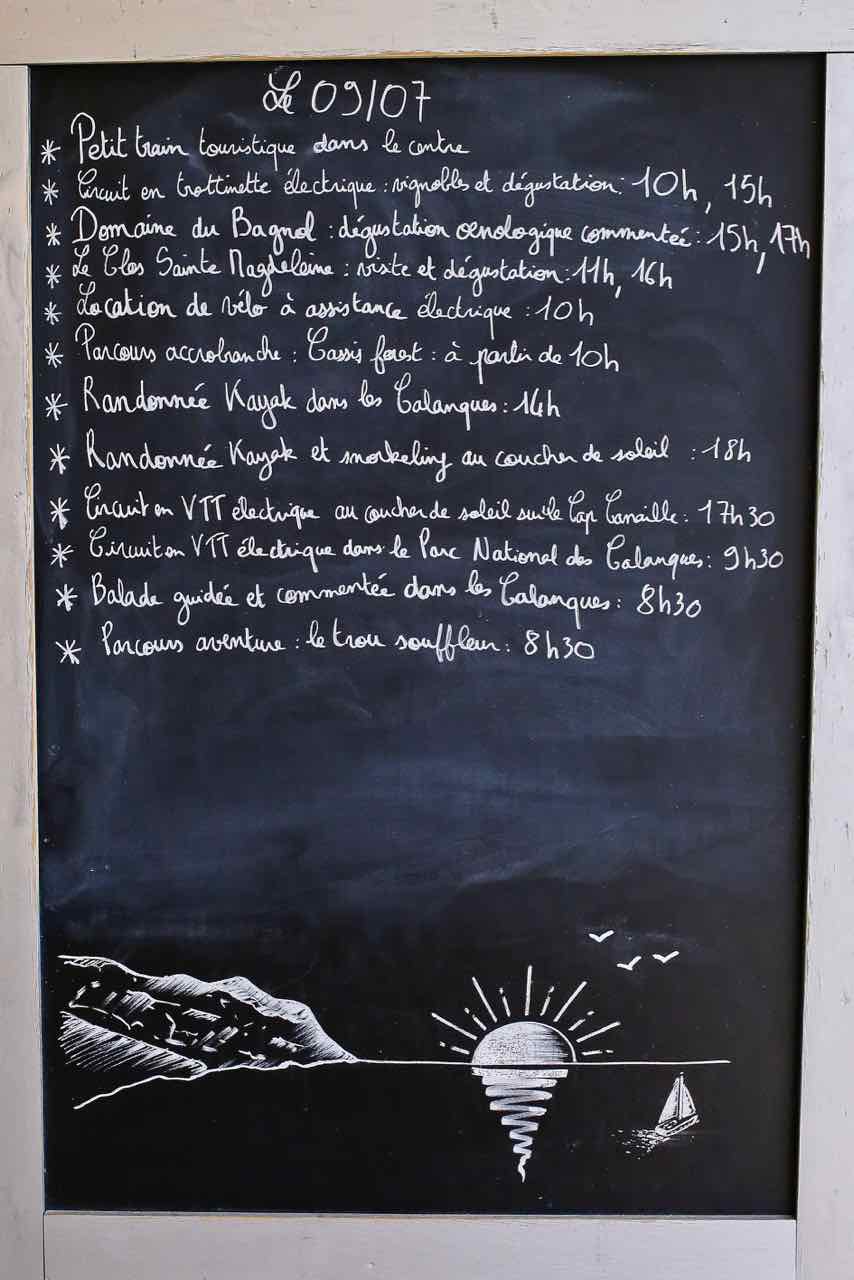 Le 09/07
* Petit train touristique dans le centre
* Circuit en trottinette électrique : vignobles et dégustation : 10h, 15h
* Domaine du Bagnol : dégustation œnologique commentée : 15h, 17h
* Le Clos Sainte Magdeleine : visite et dégustation : 11h, 16h
* Location de vélo à assistance électrique : 10h
* Parcours accrobranche : Cassis forest : à partir de 10h
* Randonnée Kayak dans les Calanques : 14h
* Randonnée Kayak et snorkeling au coucher de soleil : 18h
* Circuit en VTT électrique au coucher de soleil sur le Cap Canaille : 17h30
* Circuit en VTT électrique dans le Parc National des Calanques : 9h30
* Balade guidée et commentée dans les Calanques : 8h30
* Parcours aventure : le trou souffleur : 8h30